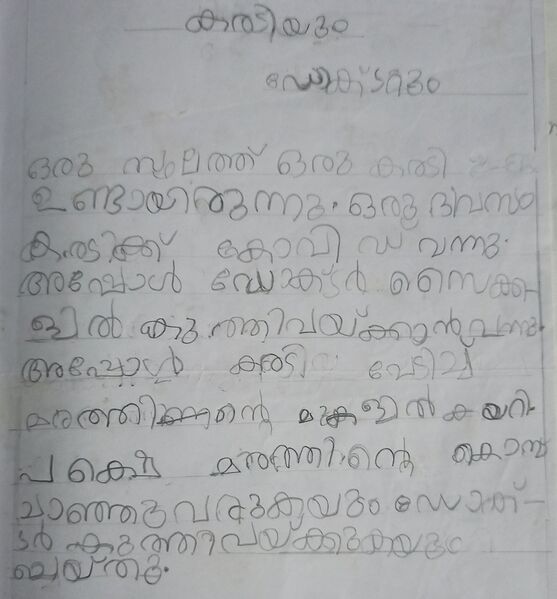 കരടിയും
ഡോക്ടറും
ഒരു സ്ഥലത്ത് ഒരു കരടി
ഉണ്ടായിരുന്നു. ഒരു ദിവസം
കരടിക്ക് കോവിഡ് വന്നു.
അപ്പോൾ ഡോക്ടർ സൈക്ക-
ളിൽ കുത്തിവയ്ക്കാൻ വന്നു
അപ്പോൾ കരടി പേടിച്ച്
മരത്തിന്റെ മുകളിൽ കയറി
പക്ഷെ മരത്തിന്റെ കൊമ്പ്
ചാഞ്ഞു വരുകയും ഡോക്-
ടർ കുത്തിവയ്ക്കുകയും
ചെയ്തു.